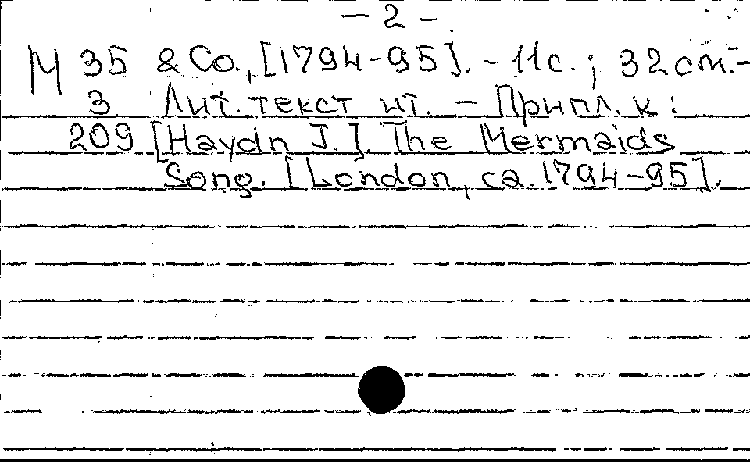 - 2 -
М 35 & Co., [1794-95]. - 11 с. ; 32 см. -
3 Лит. текст ит. - Припл. к :
209 [Haydn J.]. The Mermaids
Song. [London, ca. 1794-95].